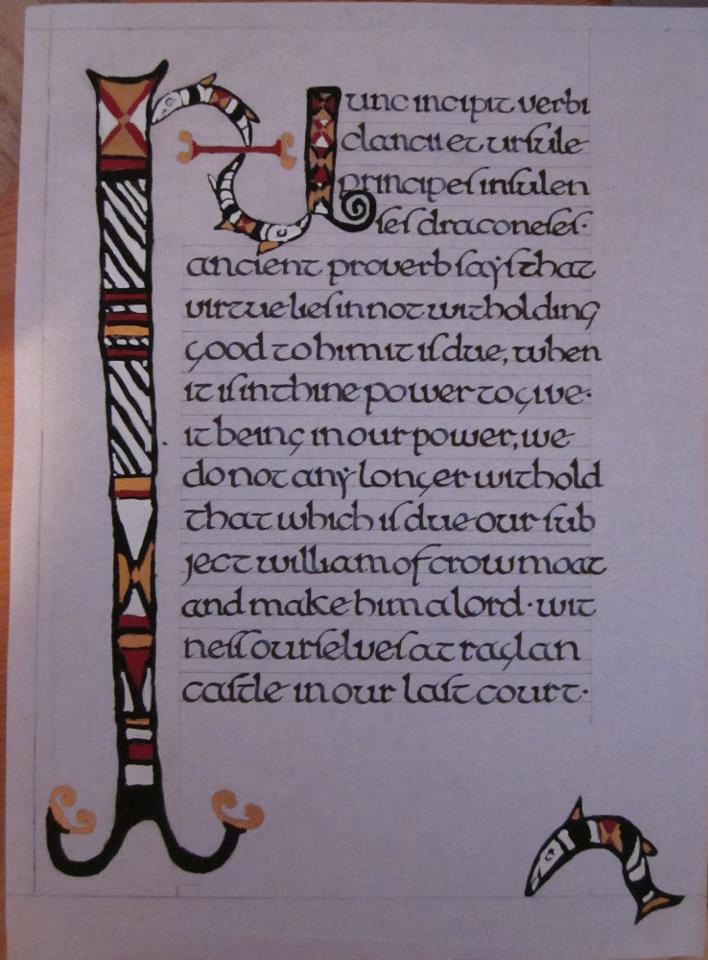 Nunc incipit verbi
clancii et ursule
principes insulen
ses draconeses·
ancient proverb says that
virtue lies in not witholding
good to him it is due, when
it is in thine power to give·
it being in our power, we
do not any longer withold
that which is due our sub
ject william of crowmoat
and make him a lord · wit
ness ourselves at raglan
castle in our last court·